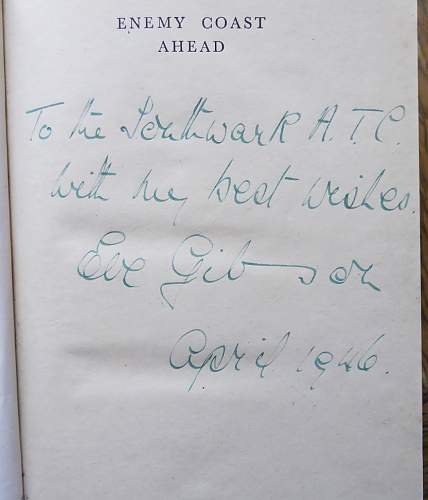 ENEMY COAST
AHEAD
To the Southwark A.T.C.
with my best wishes.
Eve Gibson
April 1946.